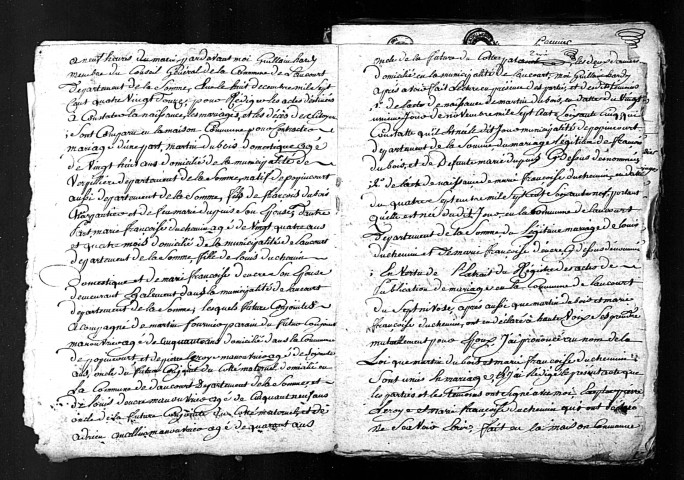 a neuf heures du matin pardavant moi Guillain hardy
membre du Conseil Général de la Commune de Laucourt
Département de la Somme, Elu le huit decembre mile sept
Cent quatre Vingt Douze, pour Rédiger les actes destinés
a Constater la naissance, les mariages, et les décés des Citoyens
Sont Comparu en la maison Commune pour contracter
mariage d'une part, martin duboie domestique agé
de Vingt huit ans domicilié de la municipalité de
departement de la Somme, natif de popincourt
aussi departement de la Somme, fils de francois duboie
et de feu marie dupuis son Epouse, d'autre
Part marie francoise duchemin agé de Vingt quatre ans
et quatre mois domicilié de la municipalité de Laucourt
departement de la Somme, fille de Louis duchemin
Domestique et de marie francoise son Epouse
demeurant Egalement dans la municipalité de laucourt
departement de la Somme, lesquels future Conjoints
accompagné de martin fournier parain du futur Conjoint
manouvrier agé de Cinquante ans domicilié dans la Commune
de popincourt et de pierre Leroy manouvrier agé de
ans, oncle du futur Conjoint du cotté maternel domicilié en
la Commune de Departement de la Somme, et
de Louis manouvrier agé de Cinquant neuf ans
oncle de la future Conjointe du cotté maternel et de
adrien manouvrier agé de quarant ans
oncle de la future du cotté paternel les deux dernier
domicilié en la municipalité de Laucourt, moi Guillain hardy
apres avoir fait lecture en presence des parties et des temoins
1° de l'acte de naissance de martin duboie, en datte du Vingt
novembre mile Sept Cent Soixante Cinq qui
Constatte qu'il Est né le dit Jour municipalité de popincourt
departement de la Somme du mariage légitime de francois
duboie, et de Defunte marie dupuis Cy dessus denommés,
2° de l'acte de naissance de marie francoise duchemin, en datte
du quatre septembre mile Sept Cent Soixante neuf portant
quelle est née du dit Jour, en la Commune de Laucourt
Departement de la Somme du Légitime mariage de Louis
duchemin et de marie francoise Cy dessus denommé
En Vertu de l'Extrait du Registre des actes de
Publication de mariage en la Commune de Laucourt
du Sept nivose, apres aussi que martin duboie et marie
francoise duchemin, ont eu déclaré a haute Voix se prendre
mutuellement pour Epoux J'ai prononcé au nom de la
Loi que martin duboie et marie francoise duchemin
Sont unis En mariage, et J'ai Rédigé le present acte que
les parties et les temoins ont signé avec moi Excepté pierre
Leroy et marie francoise duchemin qui ont déclaré
ne Savoir Ecrire, fait en la maison Commune